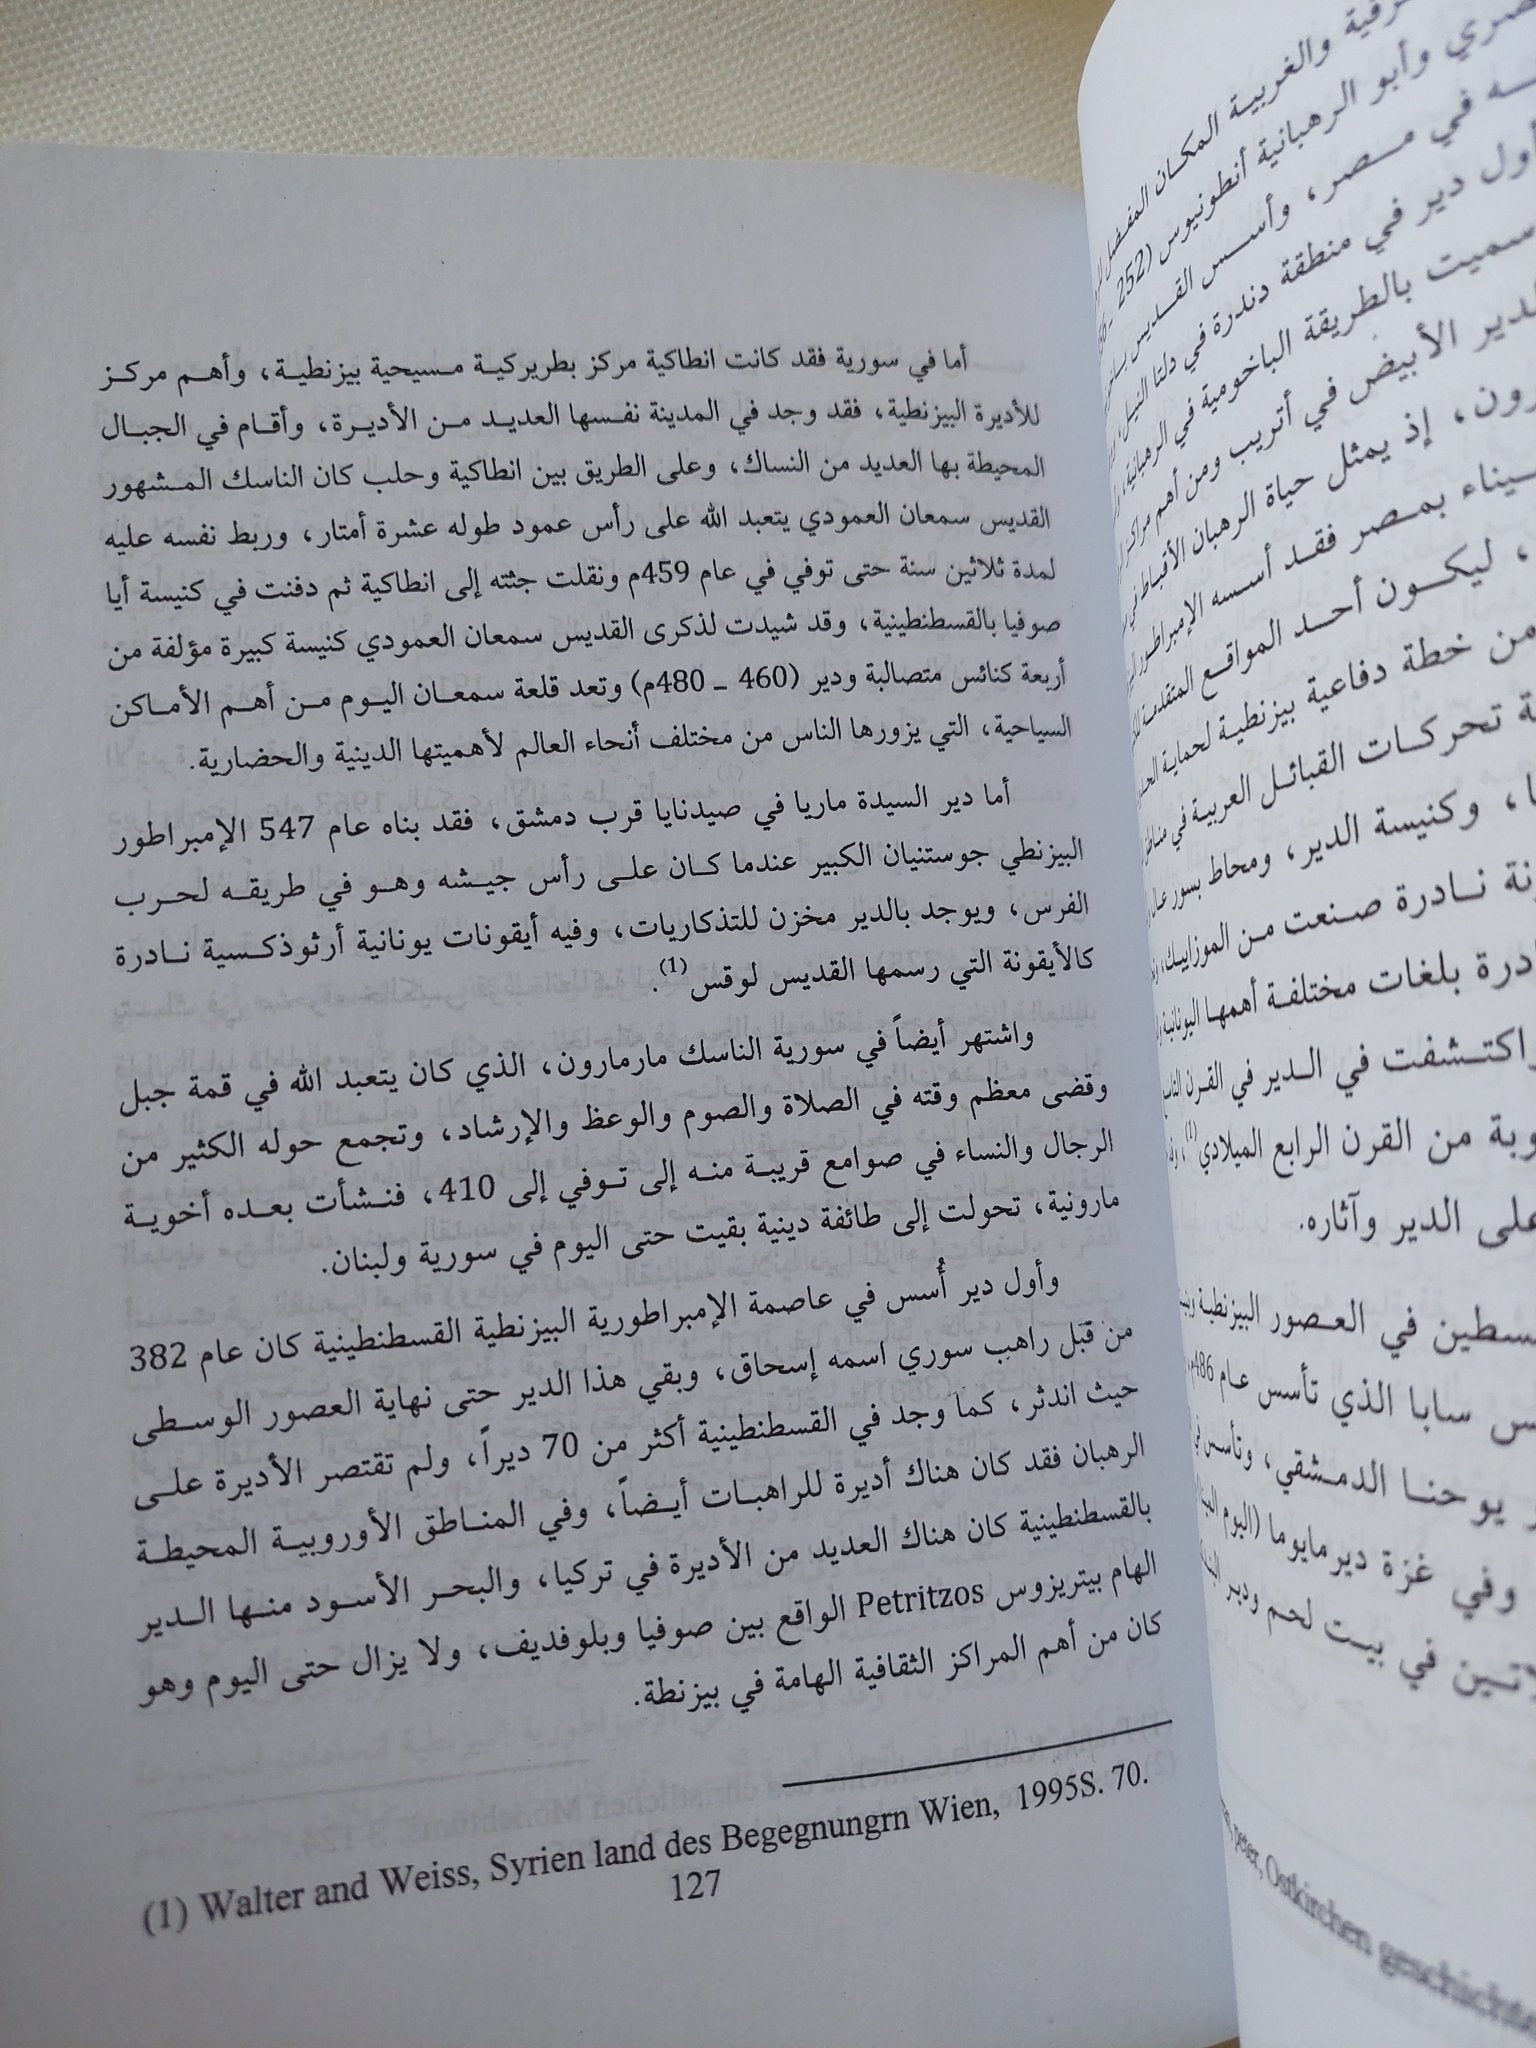 أما في سورية فقد كانت انطاكية مركز بطريركية مسيحية بيزنطية، وأهم مركز
للأديرة البيزنطية، فقد وجد في المدينة نفسها العديد من الأديرة، وأقام في الجبال
المحيطة بها العديد من النساك، وعلى الطريق بين انطاكية وحلب كان الناسك المشهور
القديس سمعان العمودي يتعبد الله على رأس عمود طوله عشرة أمتار، وربط نفسه عليه
لمدة ثلاثين سنة حتى توفي في عام 459م ونقلت جثته إلى انطاكية ثم دفنت في كنيسة أيا
صوفيا بالقسطنطينية، وقد شيدت لذكرى القديس سمعان العمودي كنيسة كبيرة مؤلفة من
أربعة كنائس متصالبة ودير (460 ـ 480م) وتعد قلعة سمعان اليوم من أهم الأماكن
السياحية، التي يزورها الناس من مختلف أنحاء العالم لأهميتها الدينية والحضارية.
أما دير السيدة ماريا في صيدنايا قرب دمشق، فقد بناه عام 547 الإمبراطور
البيزنطي جوستنيان الكبير عندما كان على رأس جيشه وهو في طريقه لحرب
الفرس، ويوجد بالدير مخزن للتذكاريات، وفيه أيقونات يونانية أرثوذكسية نادرة
كالأيقونة التي رسمها القديس لوقس(1).
واشتهر أيضاً في سورية الناسك مارمارون، الذي كان يتعبد الله في قمة جبل
وقضى معظم وقته في الصلاة والصوم والوعظ والإرشاد، وتجمع حوله الكثير من
الرجال والنساء في صوامع قريبة منه إلى توفي إلى 410، فنشأت بعده أخوية
مارونية، تحولت إلى طائفة دينية بقيت حتى اليوم في سورية ولبنان.
وأول دير أُسس في عاصمة الإمبراطورية البيزنطية القسطنطينية كان عام 382
من قبل راهب سوري اسمه إسحاق، وبقي هذا الدير حتى نهاية العصور الوسطى
حيث اندثر، كما وجد في القسطنطينية أكثر من 70 ديراً، ولم تقتصر الأديرة على
الرهبان فقد كان هناك أديرة للراهبات أيضاً، وفي المناطق الأوروبية المحيطة
بالقسطنطينية كان هناك العديد من الأديرة في تركيا، والبحر الأسود منها الدير
الهام بيتريزوس Petritzos الواقع بين صوفيا وبلوفديف، ولا يزال حتى اليوم وهو
كان من أهم المراكز الثقافية الهامة في بيزنطة.
(1) Walter and Weiss, Syrien land des Begegnungrn Wien, 1995S. 70.
127
والغربية المكان المفضل
وأبو الرهبانية أنطونيوس (252 ـ
في مصر، وأسس القديس
أول دير في منطقة دندرة في دلتا النيل
سميت بالطريقة الباخومية في الرهبانية
الأبيض في أتريب ومن أهم مراكز
إذ يمثل حياة الرهبان الأقباط في
بمصر فقد أسسه الإمبراطور
، ليكون أحد المواقع المتقدمة
من خطة دفاعية بيزنطية لحماية
تحركات القبائل العربية في
، وكنيسة الدير، ومحاط بسور
نادرة صنعت من الموزاييك،
بلغات مختلفة أهمها اليونانية
اكتشفت في الدير في القرن
من القرن الرابع الميلادي(1)،
على الدير وآثاره.
في العصور البيزنطية
سابا الذي تأسس عام 486م
يوحنا الدمشقي، وتأسس في
وفي غزة دير مايوما (اليوم
في بيت لحم ودير
peter, Ostkirchen